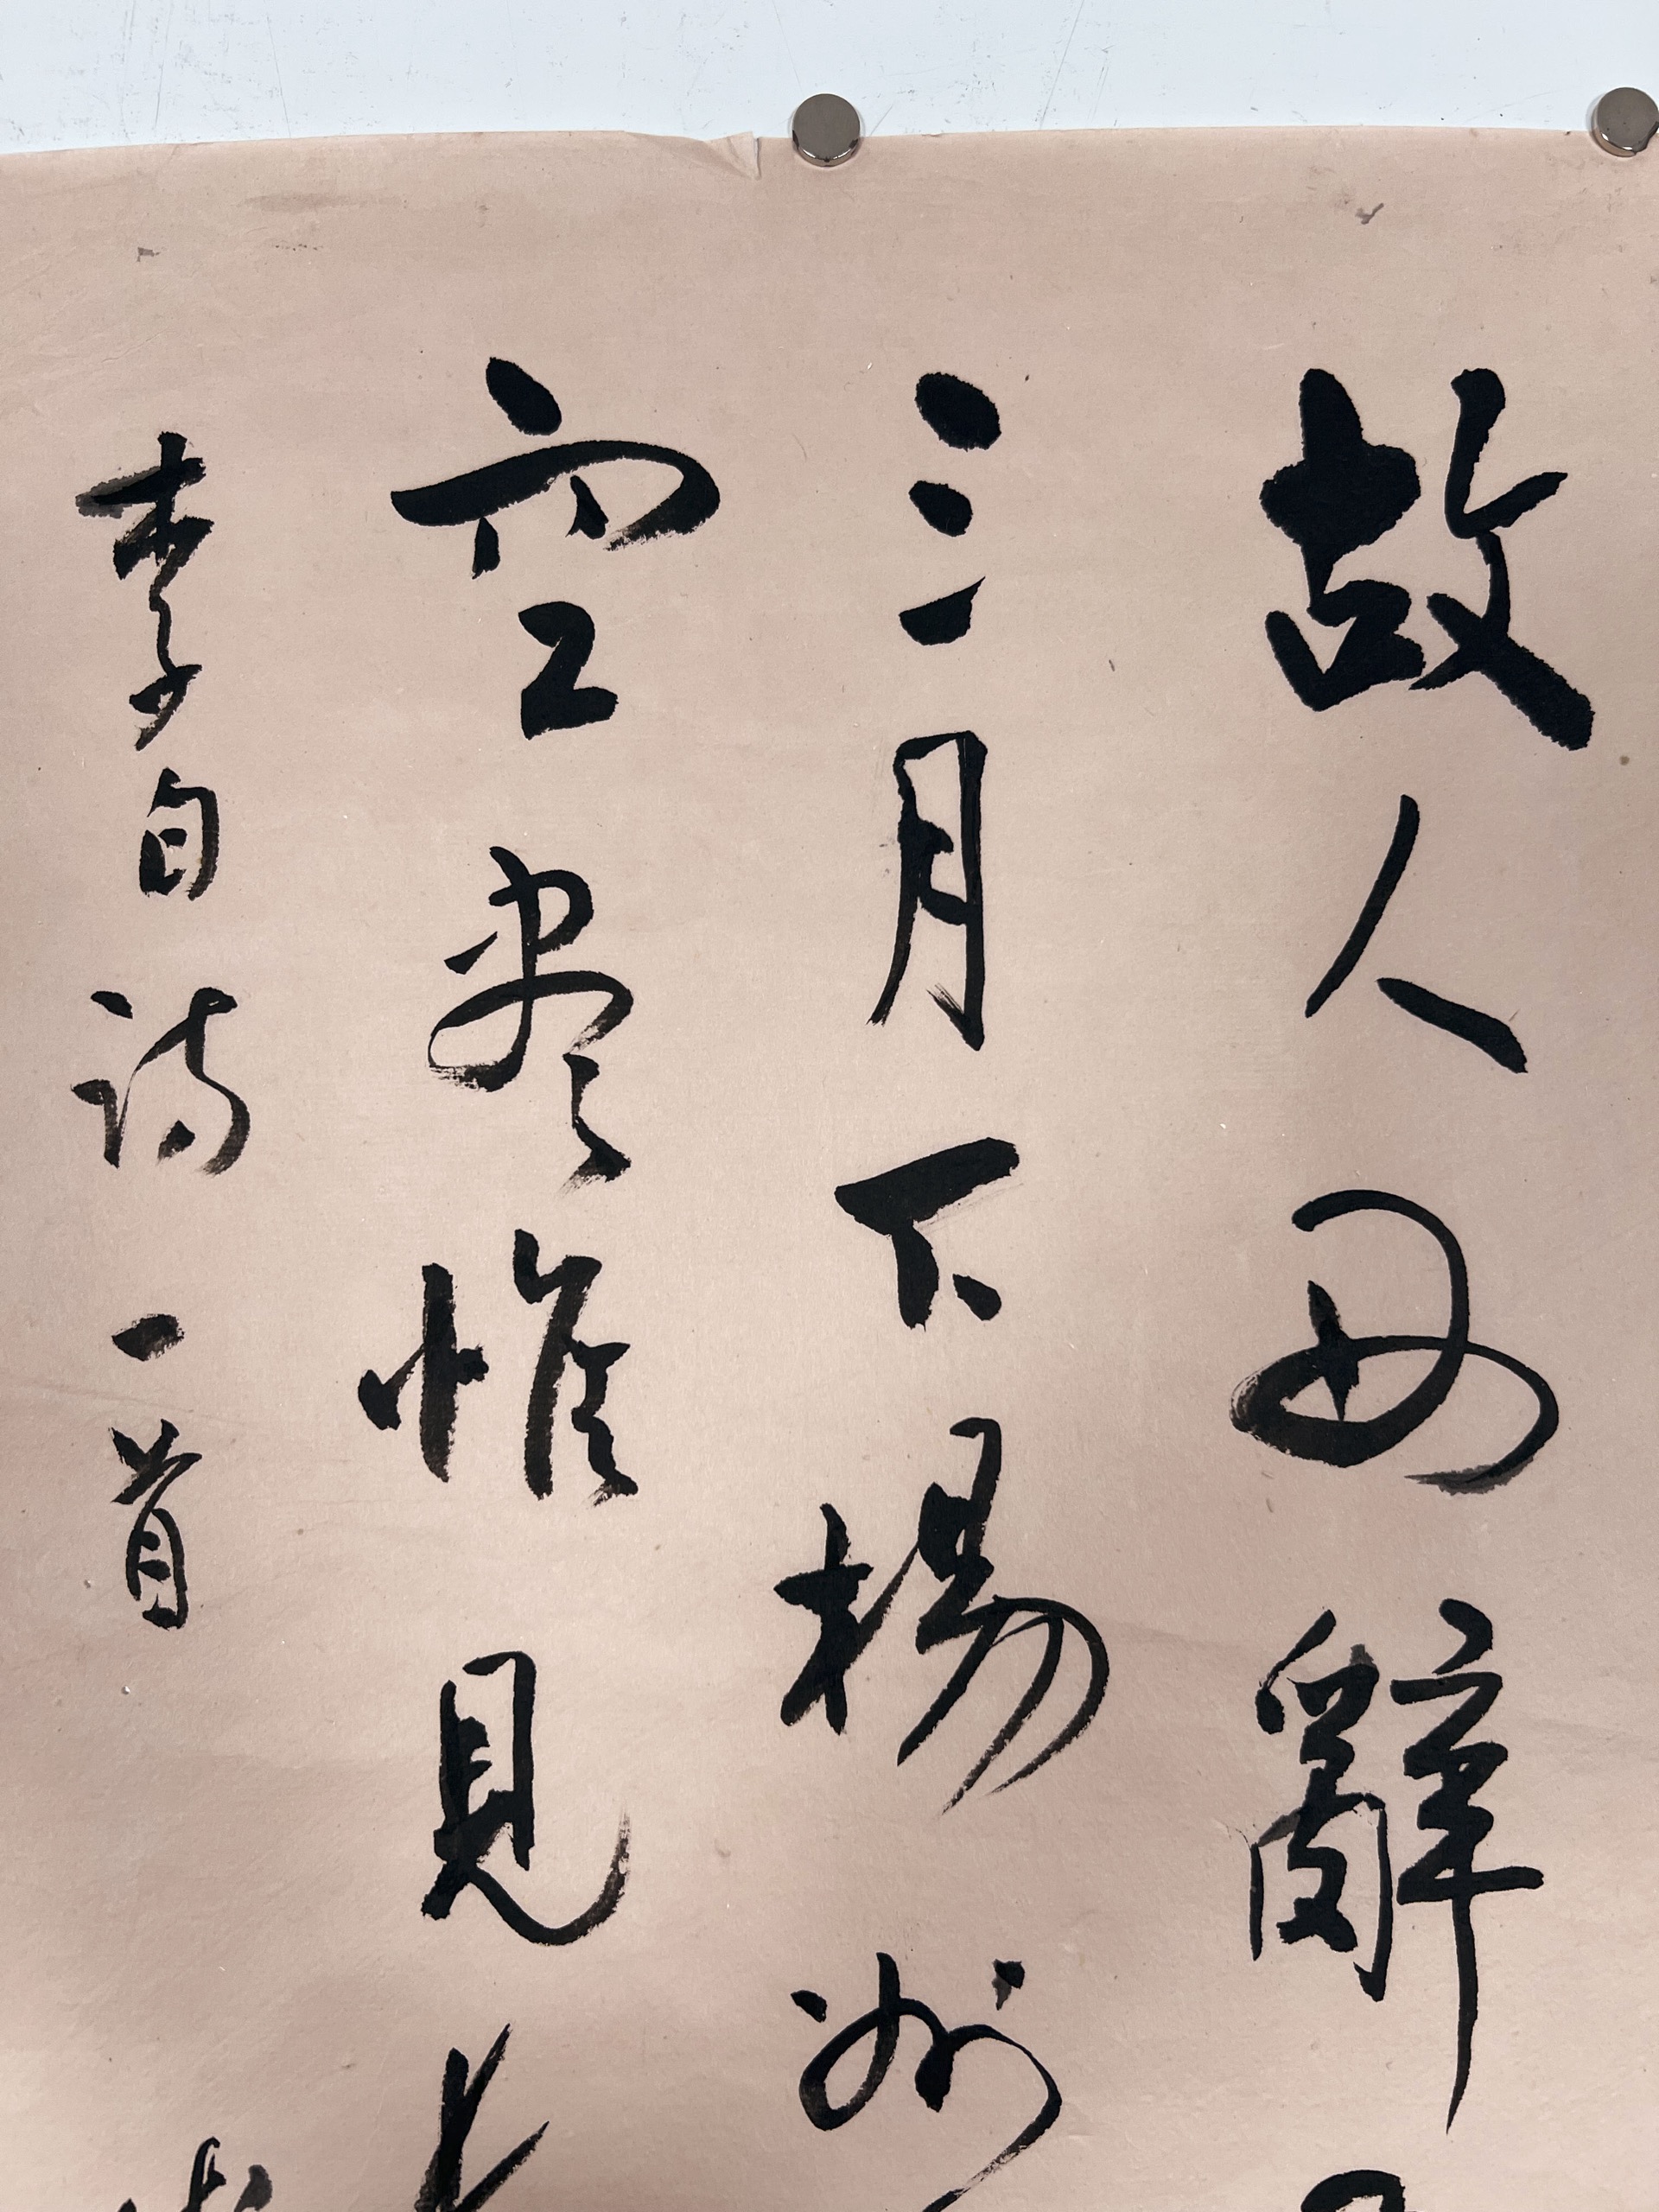 故人西辭
三月下揚州
空盡惟見長
李白詩一首